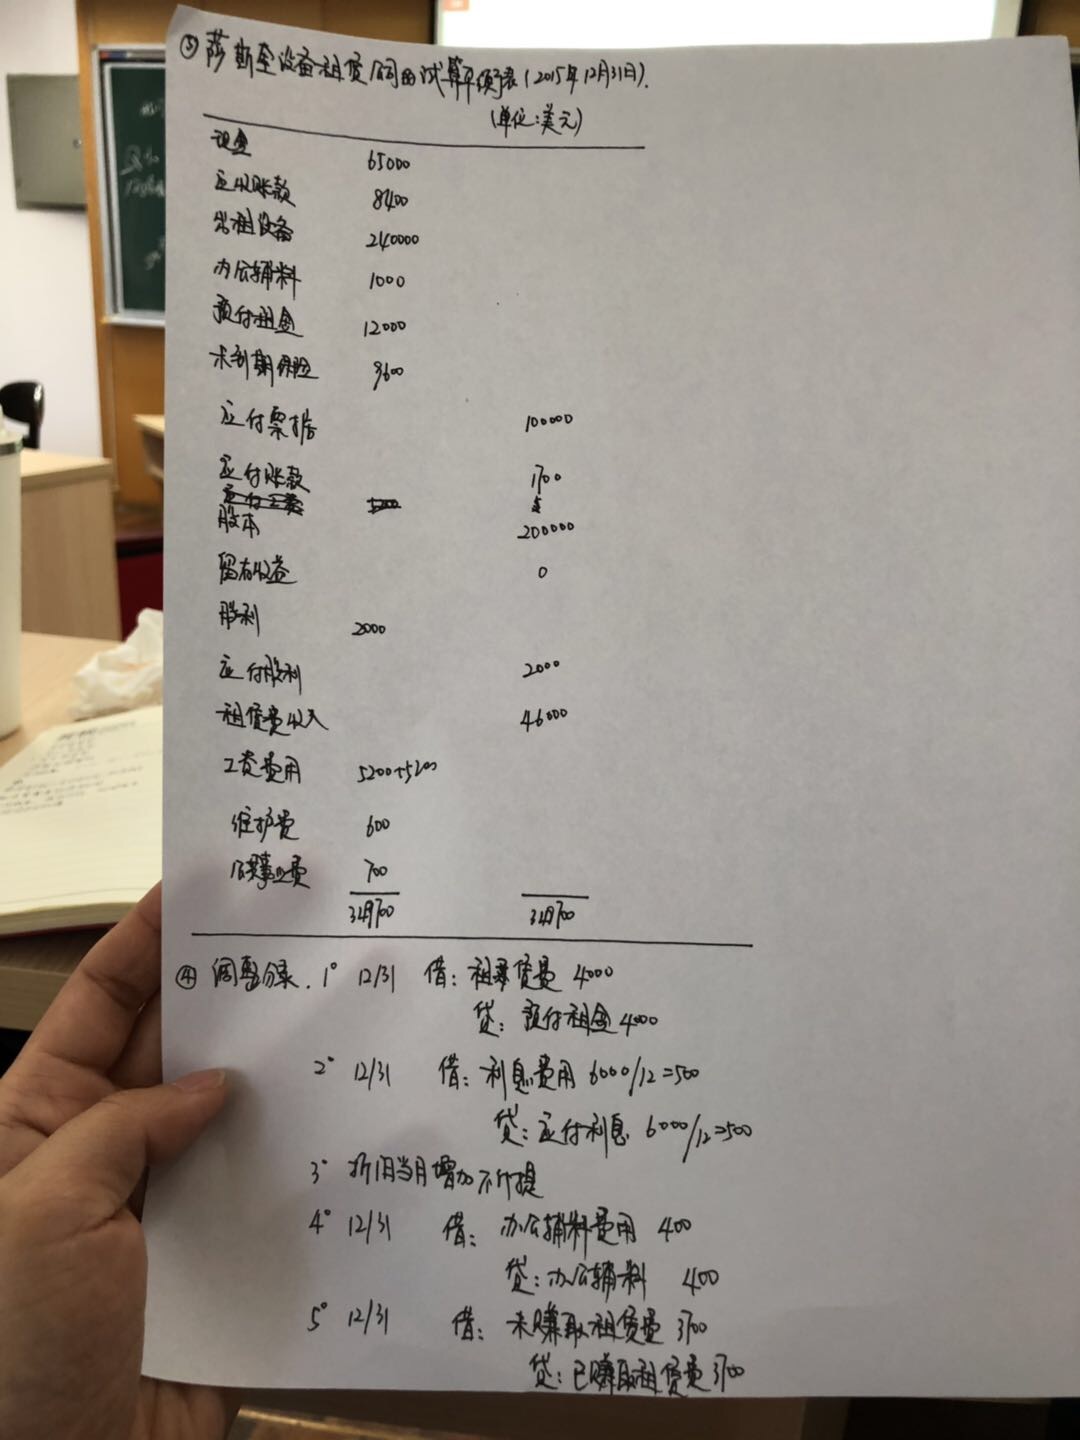 ③ 莎斯奎设备租赁公司的试算平衡表(2015年12月31日).
(单位:美元)
现金 65000
应收账款 8400
出租设备 240000
办公辅料 1000
预付租金 12000
未到期保险 9600
应付票据 100000
应付账款 1700
股本 200000
留存收益 0
股利 2000
应付股利 2000
租赁费收入 46000
工资费用 5200+5200
维护费 600
公用事业费 700
349700 349700
④ 调整分录. 1° 12/31 借: 租赁费 4000
贷: 预付租金 4000
2° 12/31 借: 利息费用 6000/12=500
贷: 应付利息 6000/12=500
3° 折旧当月增加不计提
4° 12/31 借: 办公辅料费用 400
贷: 办公辅料 400
5° 12/31 借: 未赚取租赁费 3700
贷: 已赚取租赁费 3700